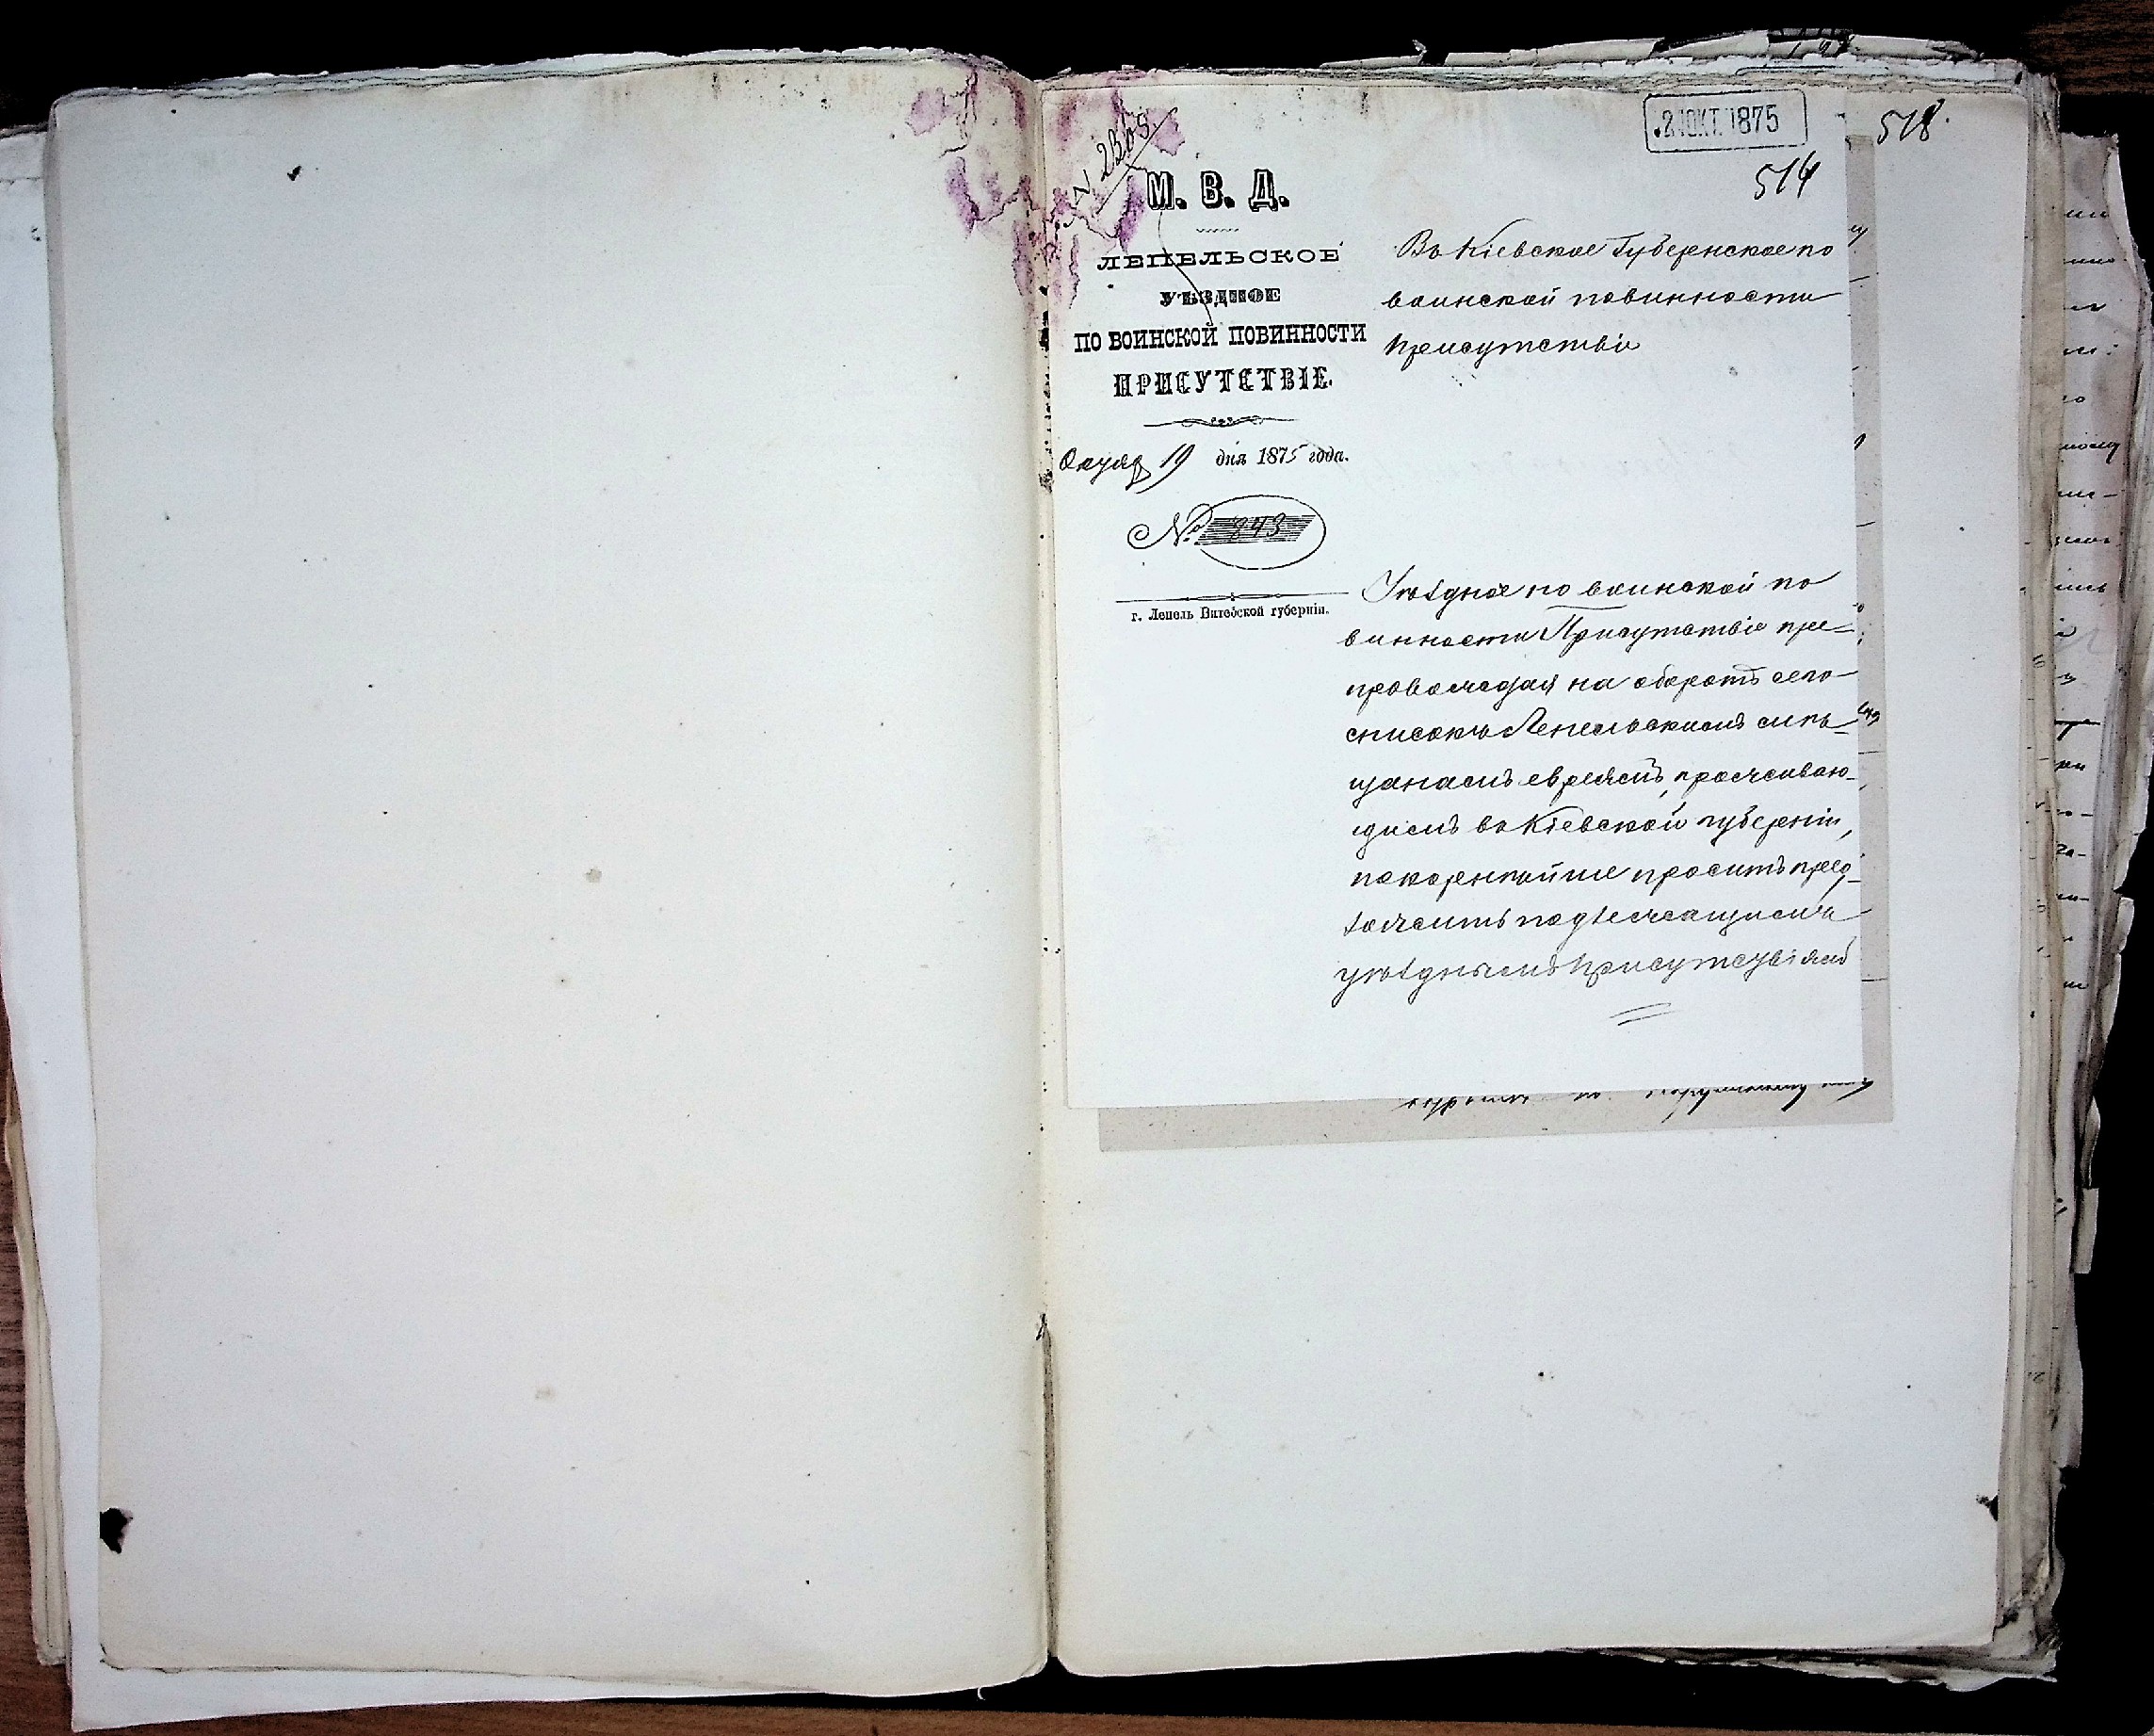 2 ОКТ. 1875
518
514
N 2305
М. В. Д.
ЛЕПЕЛЬСКОЕ
УѢЗДНОЕ
ПО ВОИНСКОЙ ПОВИННОСТИ
ПРИСУТСТВІЕ.
19 дня 1875 года.
№ 843
г. Лепель Витебской губерніи.
Въ Кіевское Губернское по
воинской повинности
Присутствіе
Уѣздное по воинской по
винности Присутствіе пре-
провождая на оборотѣ сего
списокъ Лепельскимъ мѣ-
щанамъ евреямъ, проживаю-
щимъ въ Кіевской губерніи,
покорнѣйше проситъ предло-
жить подлежащимъ
уѣзднымъ Присутствіямъ